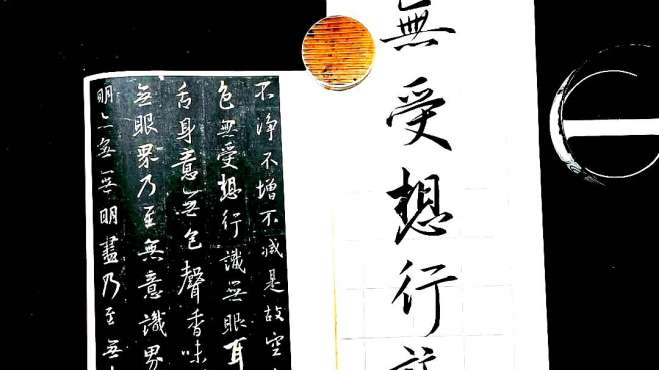 無受想行
不淨不增不減是故空
色無受想行識無眼耳
舌身意無色聲香味
無眼界乃至無意識界
明亦無無明盡乃至無